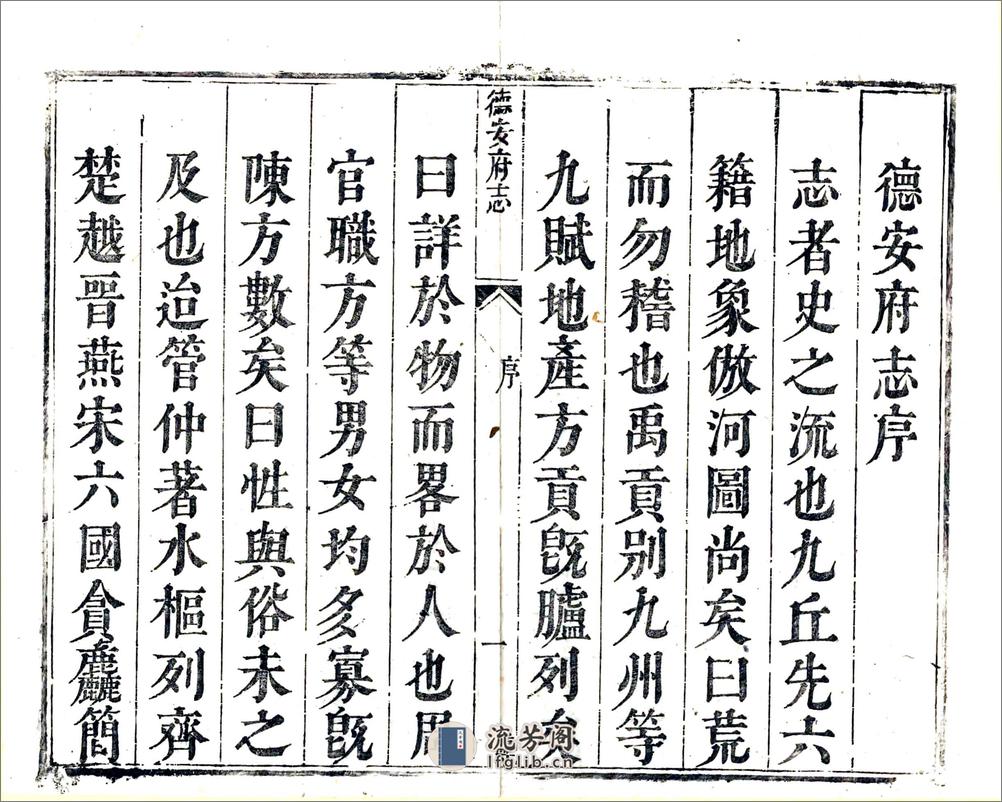 德安府志序
志者史之流也九丘先六
籍地象倣河圖尚矣曰荒
而勿稽也禹貢别九州等
九賦地產方貢旣臚列矣
德安府志
序
一
曰詳於物而畧於人也周
官職方等男女均多寡旣
陳方數矣曰性與俗未之
及也迨管仲著水樞列齊
楚越晋燕宋六國貪麤簡
流芳阁
lfglib.cn